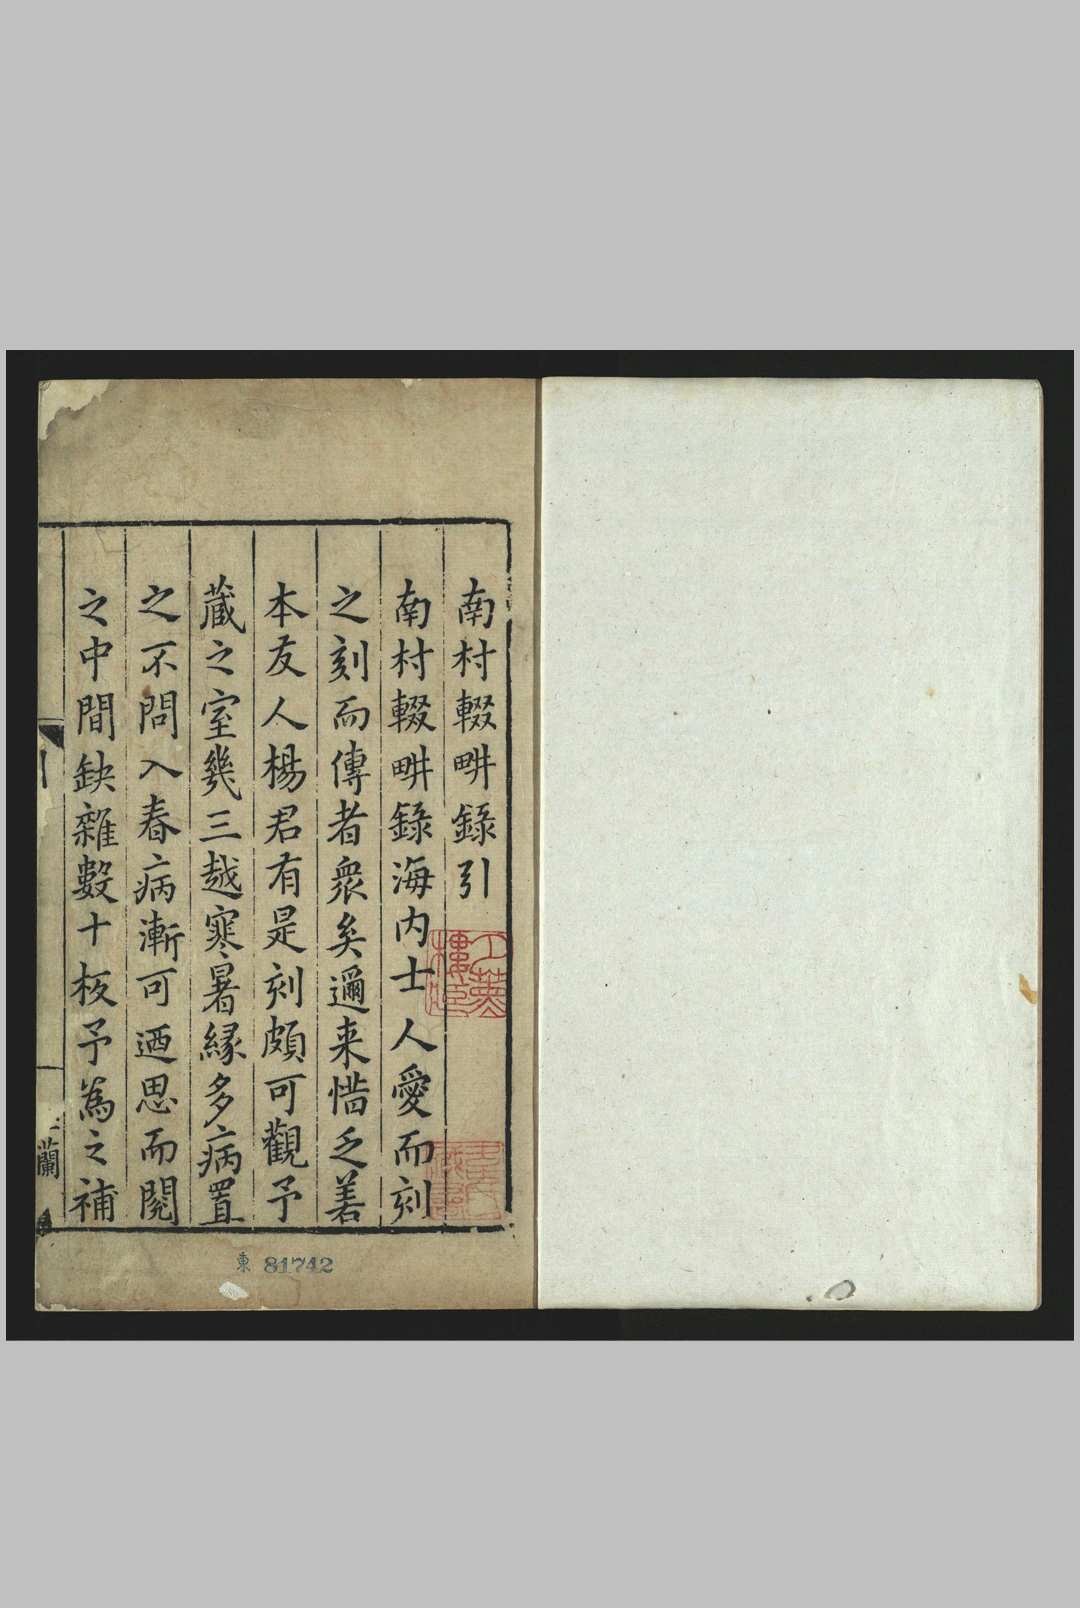 南村輟畊錄引
南村輟畊錄海内士人愛而刻
之刻而傳者衆矣邇来惜乏善
本友人楊君有是刻頗可觀予
藏之室幾三越寒暑緣多病置
之不問入春病漸可迺思而閱
之中間缺雜數十板予為之補
蘭
東 81742